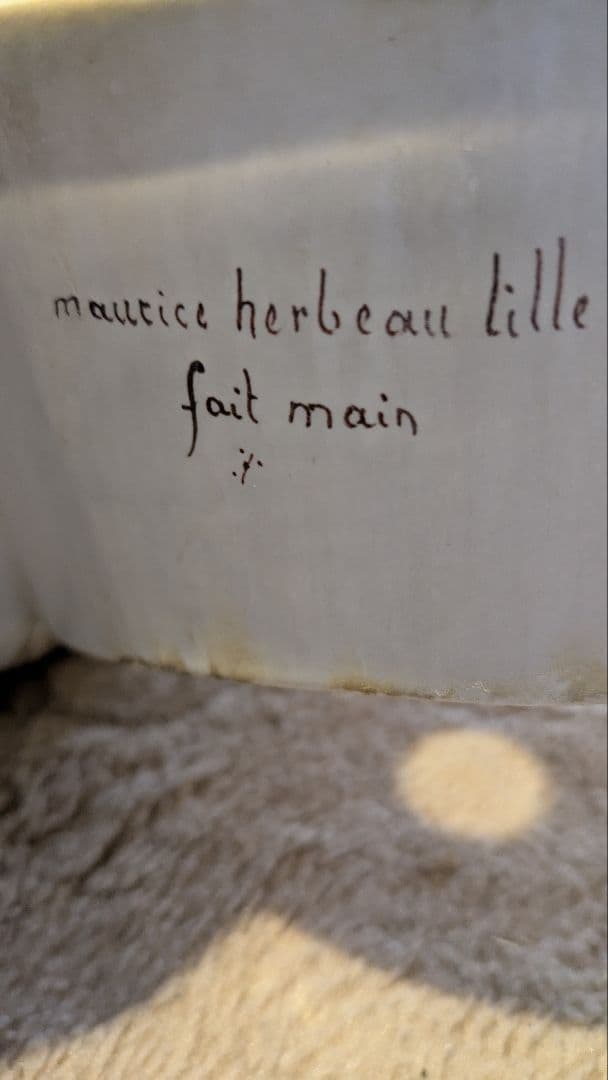 maurice herbeau lille
fait main